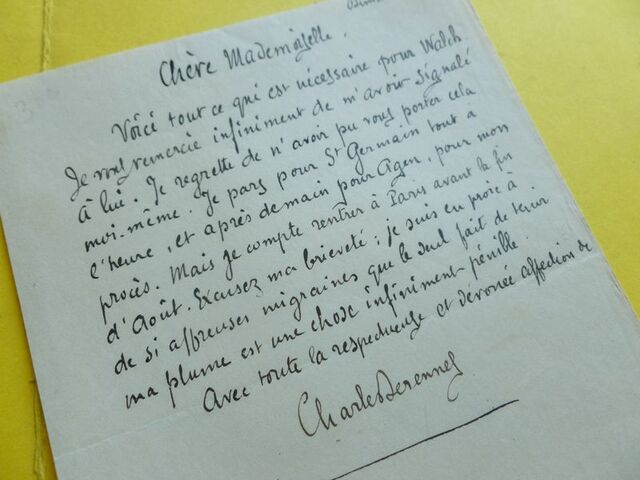 Chère Mademoiselle,
Voici tout ce qui est nécessaire pour Walch.
Je vous remercie infiniment de m'avoir signalé
à lui. Je regrette de n'avoir pu vous porter cela
moi-même. Je pars pour St Germain tout à
l'heure, et après demain pour Agen, pour mon
procès. Mais je compte rentrer à Paris avant la fin
d'Août. Excusez ma brieveté : je suis en proie à
de si affreuses migraines que le seul fait de tenir
ma plume est une chose infiniment pénible
Avec toute la respectueuse et dévouée affection de
Charles Derennes